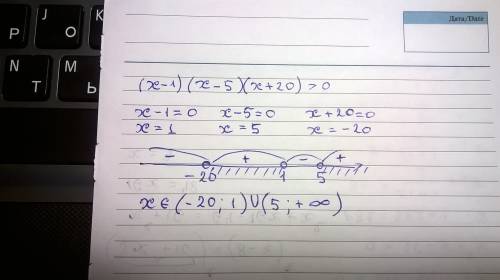 Р J О K
И N Т M Ь
Дата/Date
(x-1)(x-5)(x+20)>0
x-1=0 x-5=0 x+20=0
x=1 x=5 x=-20
- + - +
-20 1 5
x∈(-20;1)∪(5;+∞)